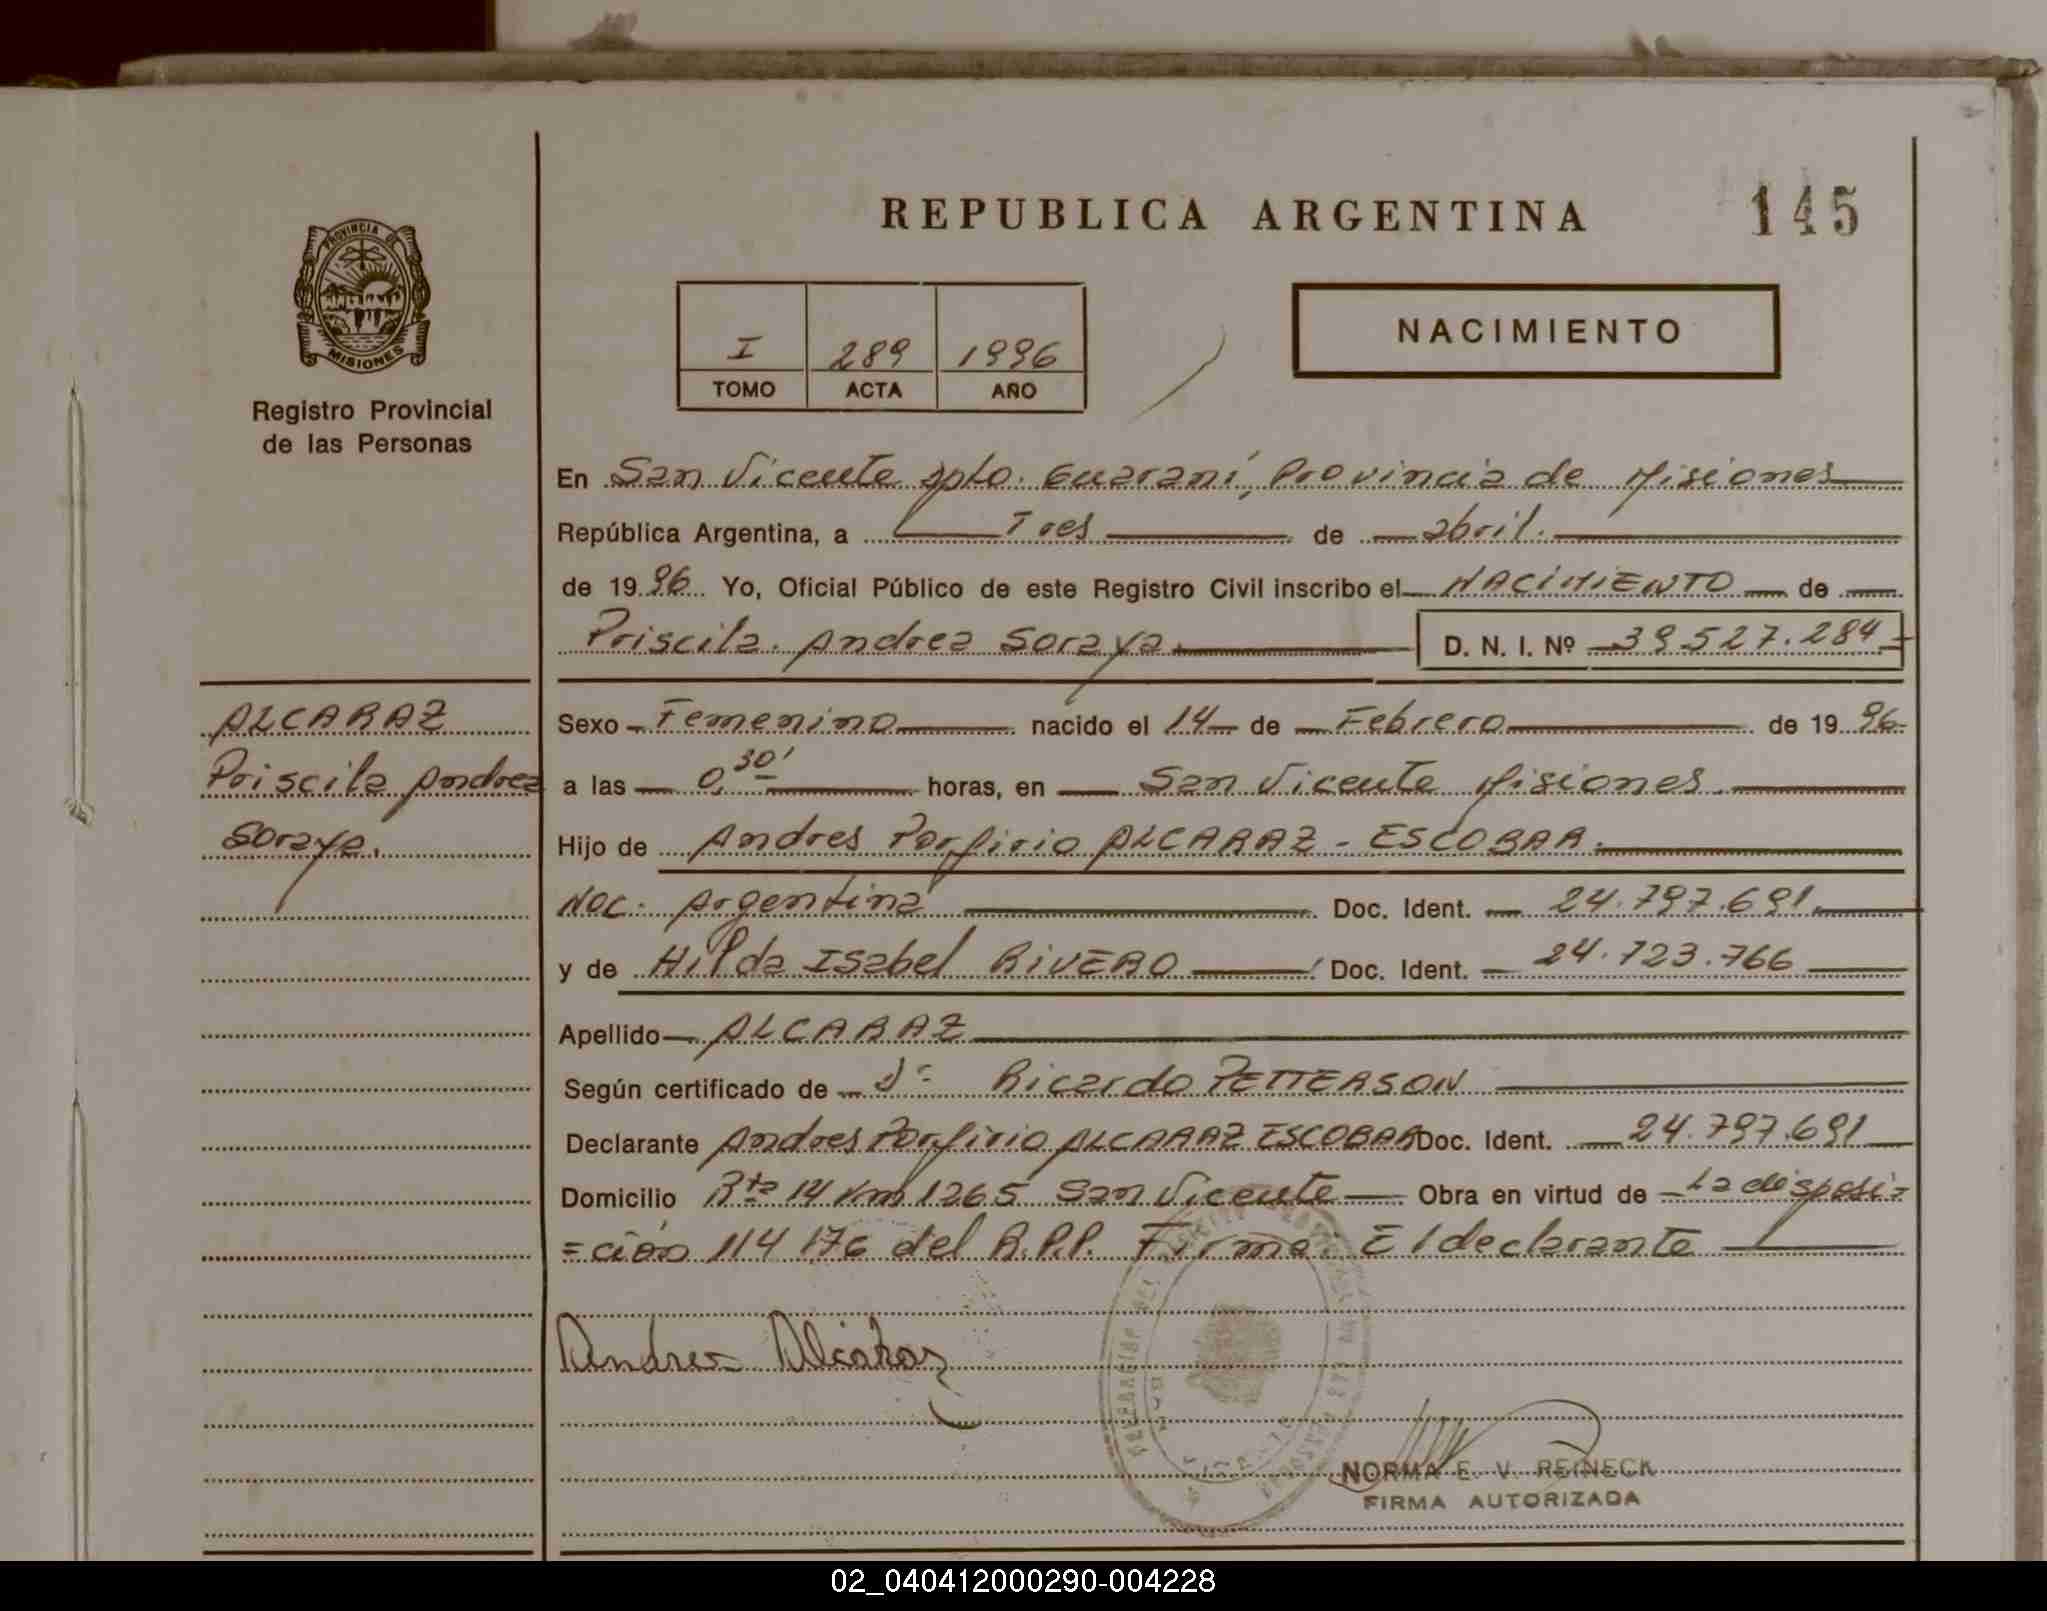 REPUBLICA ARGENTINA
145
PROVINCIA DE
MISIONES
Registro Provincial
de las Personas
I 289 1996
TOMO ACTA AÑO
NACIMIENTO
En San Vicente Dpto. Guaraní, Provincia de Misiones
República Argentina, a Tres de abril.
de 19 96 Yo, Oficial Público de este Registro Civil inscribo el NACIMIENTO de
Priscila. Andrea Soraya. D. N. I. Nº 39.527.284
ALCARAZ
Priscila Andrea
Soraya.
Sexo Femenino nacido el 14 de Febrero de 19 96
a las 0,30' horas, en San Vicente Misiones.
Hijo de Andres Porfirio ALCARAZ - ESCOBAR.
Nac. Argentina Doc. Ident. 24.797.691.
y de Hilda Isabel RIVERO Doc. Ident. 24.723.766
Apellido ALCARAZ
Según certificado de Dr. Ricardo PETTERSON
Declarante Andres Porfirio ALCARAZ ESCOBAR Doc. Ident. 24.797.691
Domicilio Rta 14 Km 1265 San Vicente Obra en virtud de La disposi=
=ción 114/76 del R.P.P. Firma: El declarante
Andres Alcaraz
NORMA E. V. REINECK
FIRMA AUTORIZADA
02_040412000290-004228